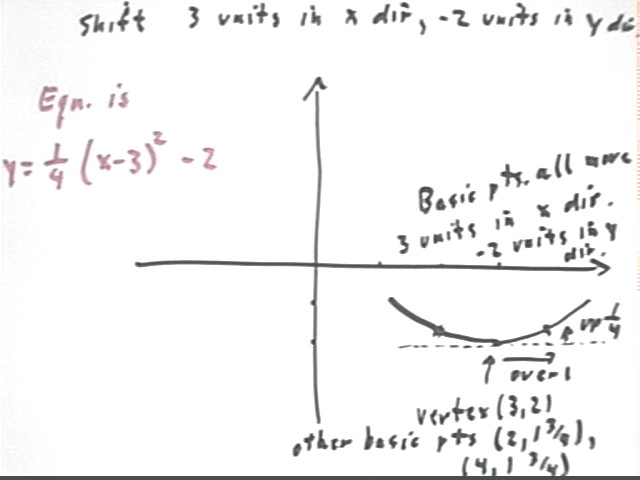 Shift 3 units in x dir, -2 units in y dir
Eqn. is
y = 1/4 (x-3)² - 2
Basic pts. all move
3 units in x dir.
-2 units in y
dir.
up 1/4
over 1
vertex (3,2)
other basic pts (2, 1 3/4),
(4, 1 3/4)